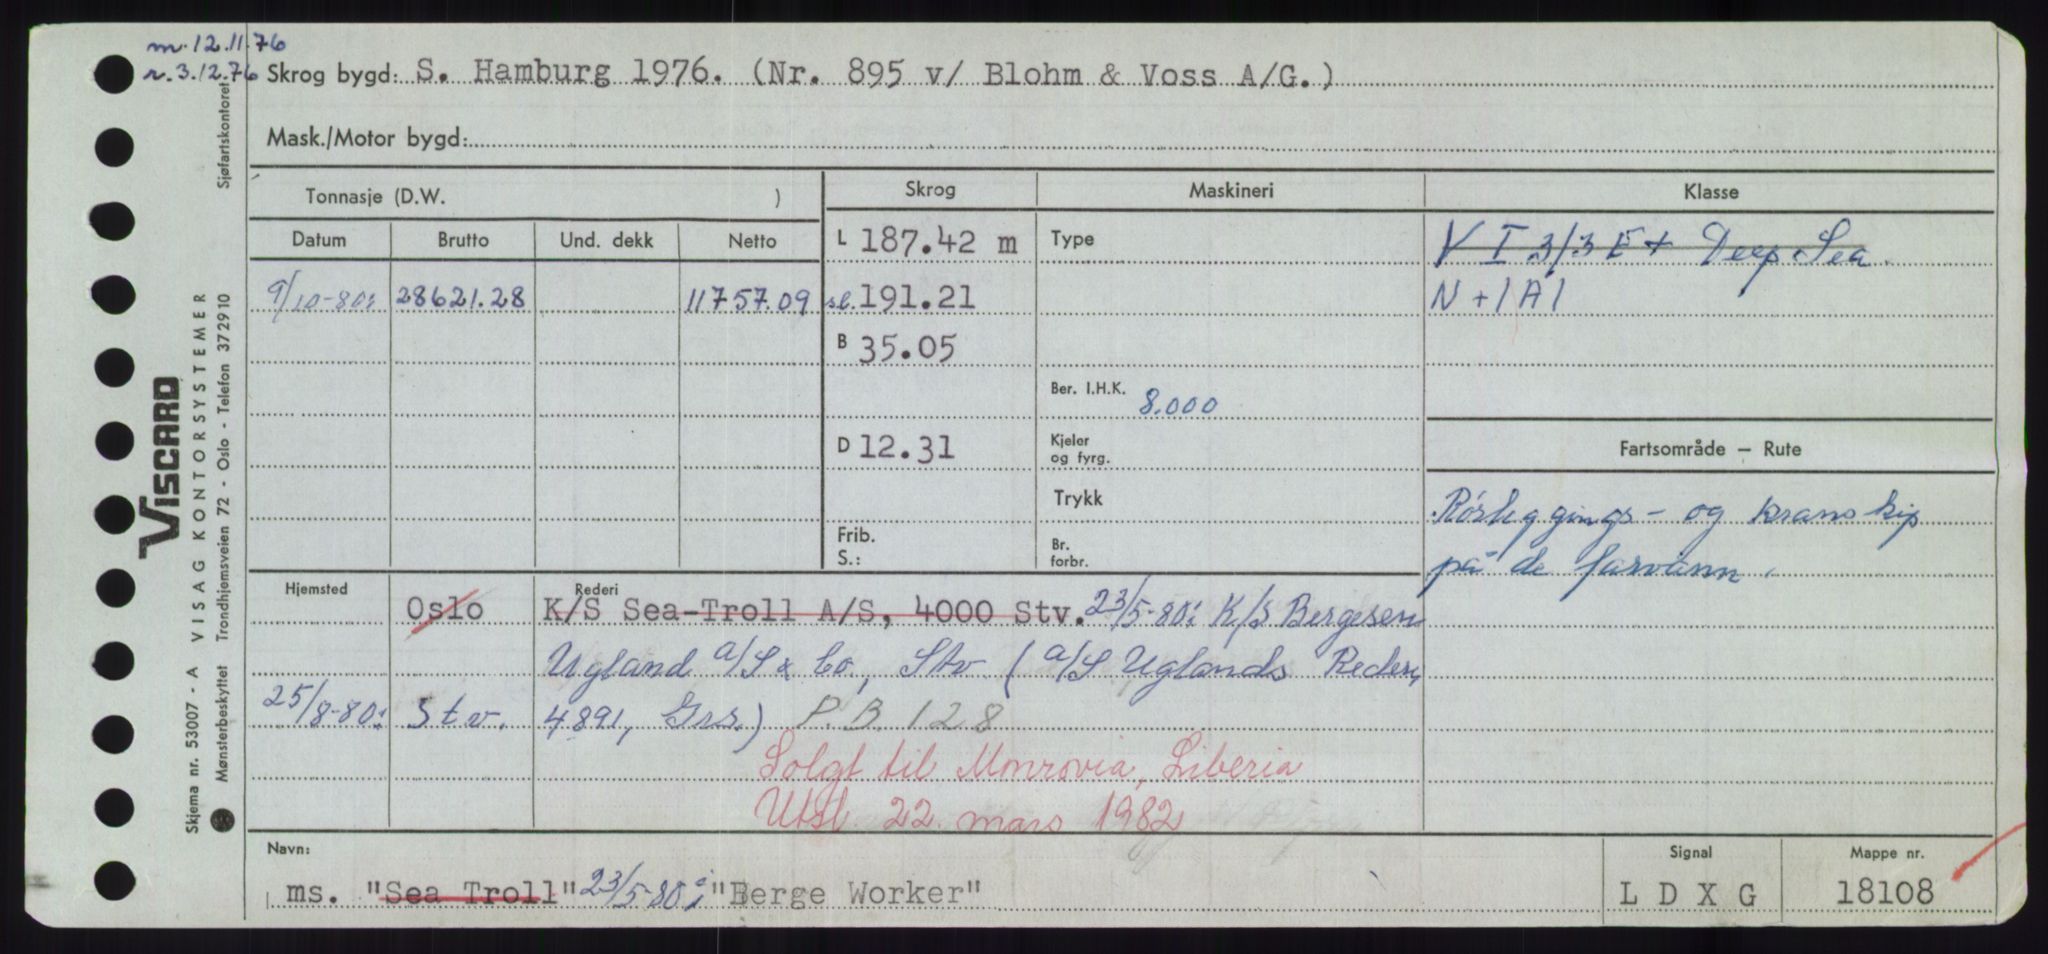 m. 12.11.76
r. 3.12.76 Skrog bygd: S. Hamburg 1976. (Nr. 895 v/ Blohm & Voss A/G.)
Mask./Motor bygd:
Tonnasje (D.W. )
Skrog Maskineri Klasse
Datum Brutto Und. dekk Netto
L 187.42 m Type V I 3/3 E + Deep Sea
9/10-80: 28621.28 11757.09 sl. 191.21 N + 1A1
B 35.05
Ber. I.H.K. 8.000
D 12.31 Kjeler og fyrg. Fartsområde — Rute
Trykk Rørleggings- og kranskip
Frib. S.: Br. forbr. på de farvann.
Hjemsted Rederi
Oslo K/S Sea-Troll A/S, 4000 Stv. 23/5-80: K/S Bergesen
Ugland a/S & Co., Stv (a/S Uglands Rederi,
25/8-80: Stv. 4891, Grs.) P.B. 128
Solgt til Monrovia, Liberia
Utsl. 22. mars 1982
Navn: Signal Mappe nr.
ms. "Sea Troll" 23/5-80: "Berge Worker" L D X G 18108
VISCARD
VISAG KONTORSYSTEMER
Sjøfartskontoret
Skjema nr. 53007 - A
Mønsterbeskyttet Trondhjemsveien 72 - Oslo - Telefon 372910